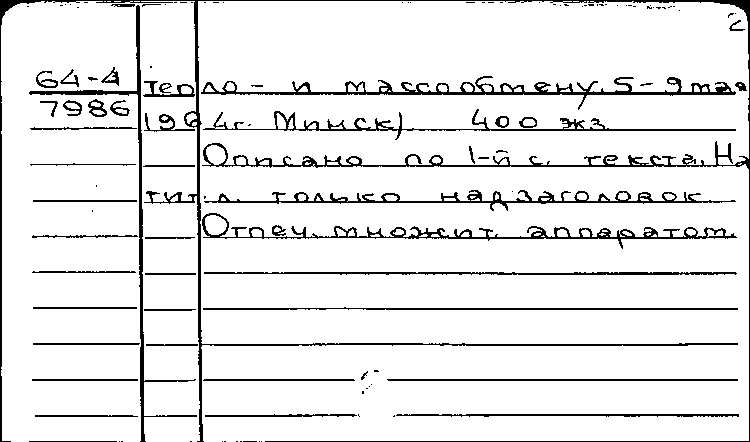 2
64-4 тепло- и массообмену. 5-9 мая
7986 1964г. Минск) 400 экз.
Описано по 1-й с. текста. На
тит. л. только надзаголовок
Отпеч. множит. аппаратом.